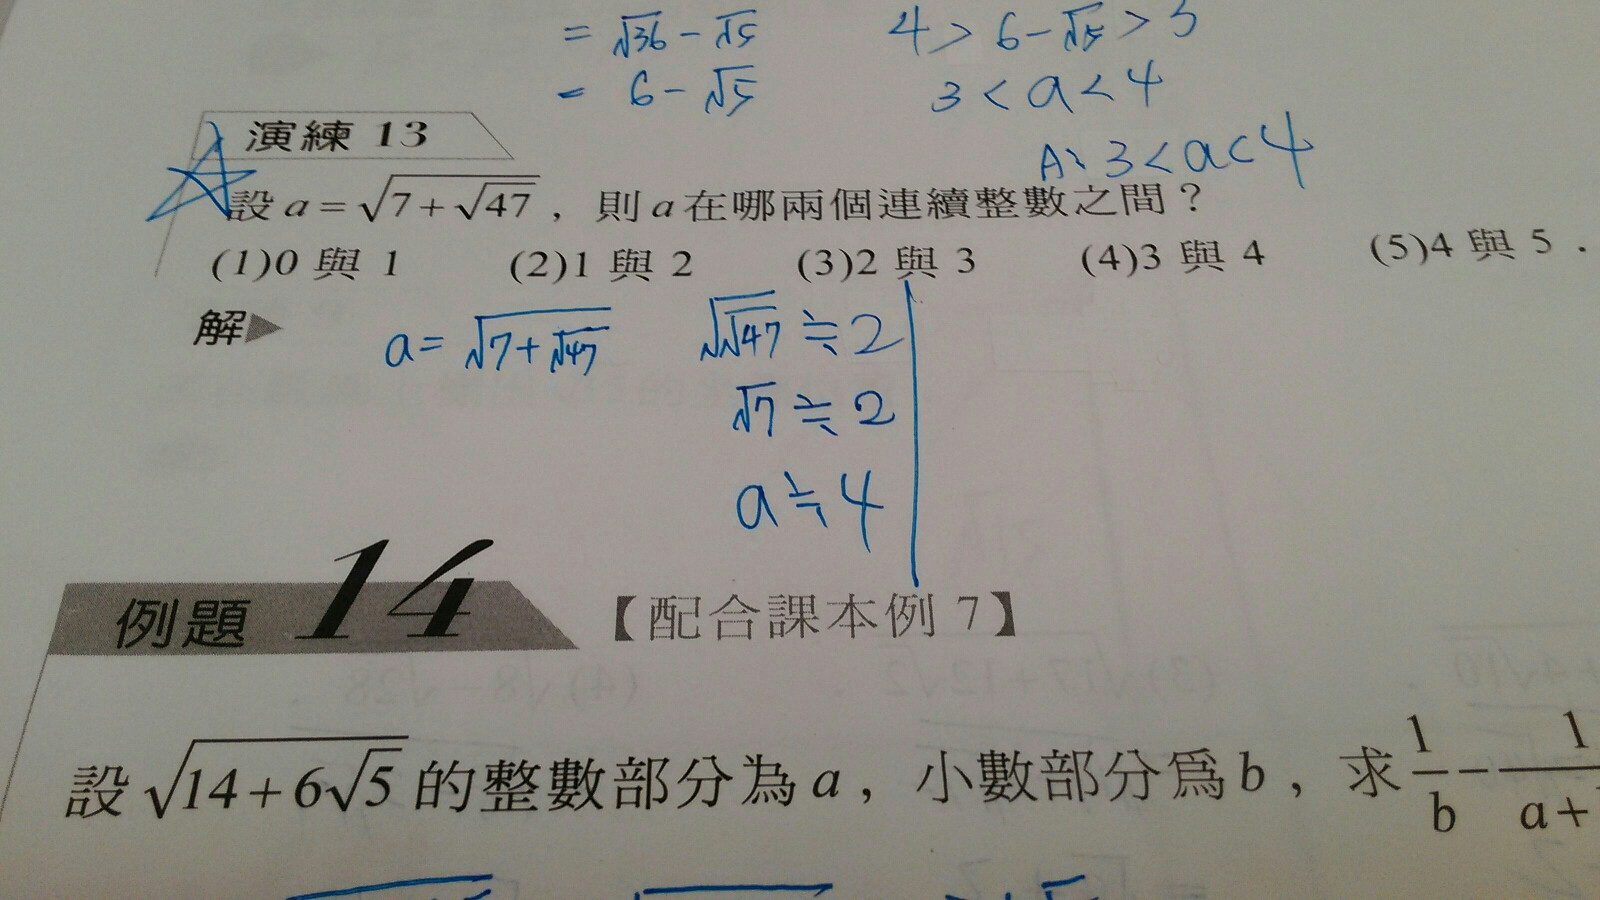 = √36 - √5 4 > 6 - √5 > 3
= 6 - √5 3 < a < 4
演練 13 A: 3 < a < 4
設 a = √(7 + √47) ， 則 a 在哪兩個連續整數之間？
(1)0 與 1 (2)1 與 2 (3)2 與 3 (4)3 與 4 (5)4 與 5．
解▶ a = √(7 + √47) √√47 ≒ 2
√7 ≒ 2
a ≒ 4
例題 14 【配合課本例 7】
設 √(14 + 6√5) 的整數部分為 a ， 小數部分為 b ， 求 1/b - 1/(a +